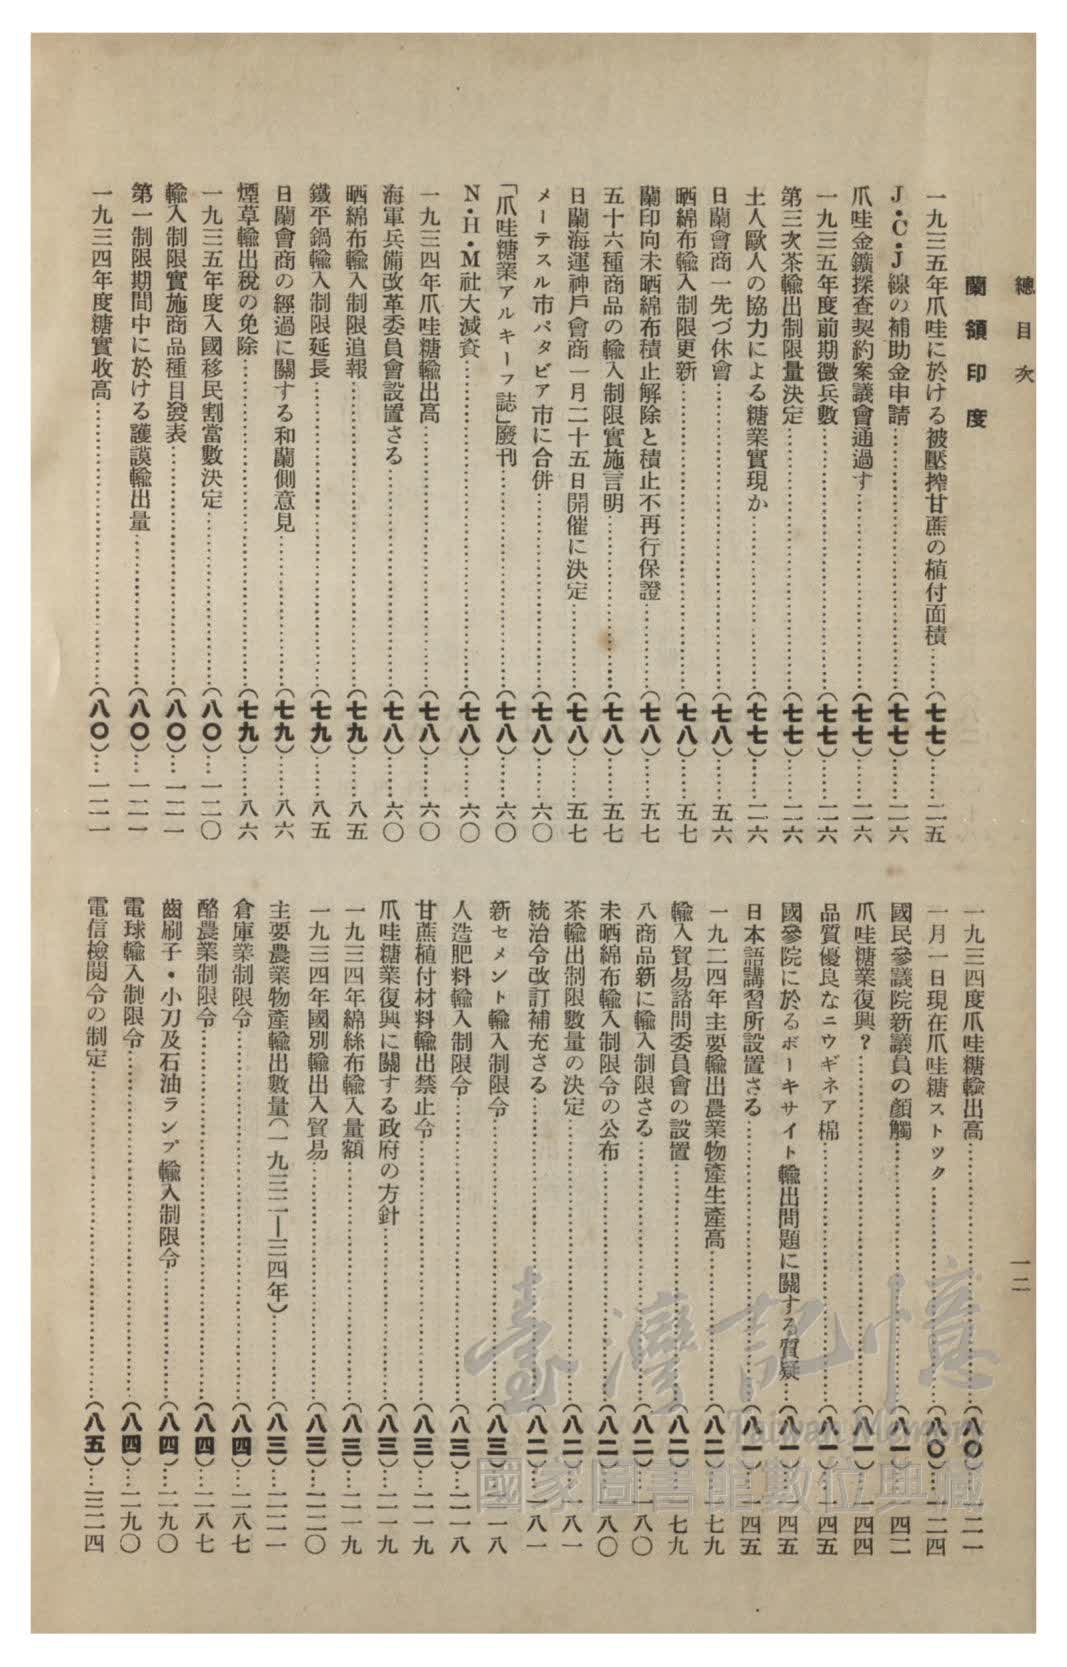 總目次
蘭領印度
一九三五年爪哇に於ける被壓搾甘蔗の植付面積……(七七)……二五
J・C・J線の補助金申請……(七七)……二六
爪哇金鑛探查契約案議會通過す……(七七)……二六
一九三五年度前期徵兵數……(七七)……二六
第三次茶輸出制限量決定……(七七)……二六
土人歐人の協力による糖業實現か……(七七)……二六
日蘭會商一先づ休會……(七八)……五六
晒綿布輸入制限更新……(七八)……五七
蘭印向未晒綿布積止解除と積止不再行保證……(七八)……五七
五十六種商品の輸入制限實施言明……(七八)……五七
日蘭海運神戶會商一月二十五日開催に決定……(七八)……五七
メーテスル市バタビア市に合併……(七八)……六〇
「爪哇糖業アルキーフ誌」廢刊……(七八)……六〇
N・H・M社大減資……(七八)……六〇
一九三四年爪哇糖輸出高……(七八)……六〇
海軍兵備改革委員會設置さる……(七八)……六〇
晒綿布輸入制限追報……(七九)……八五
鐵平鍋輸入制限延長……(七九)……八五
日蘭會商の經過に關する和蘭側意見……(七九)……八六
煙草輸出稅の免除……(七九)……八六
一九三五年度入國移民割當數決定……(八〇)…一二〇
輸入制限實施商品種目發表……(八〇)…一二一
第一制限期間中に於ける護謨輸出量……(八〇)…一二一
一九三四年度糖實收高……(八〇)…一二一
一九三四度爪哇糖輸出高……(八〇)…一二一
一月一日現在爪哇糖ストック……(八〇)…一二四
國民參議院新議員の顏觸……(八一)…一四二
爪哇糖業復興？……(八一)…一四四
品質優良なニウギネア棉……(八一)…一四五
國參院に於るボーキサイト輸出問題に關する質疑……(八一)…一四五
日本語講習所設置さる……(八一)…一四五
一九二四年主要輸出農業物產生產高……(八二)…一七九
輸入貿易諮問委員會の設置……(八二)…一七九
八商品新に輸入制限さる……(八二)…一八〇
未晒綿布輸入制限令の公布……(八二)…一八〇
茶輸出制限數量の決定……(八二)…一八一
統治令改訂補充さる……(八二)…一八一
新セメント輸入制限令……(八三)…二一八
人造肥料輸入制限令……(八三)…二一八
甘蔗植付材料輸出禁止令……(八三)…二一九
爪哇糖業復興に關する政府の方針……(八三)…二一九
一九三四年綿絲布輸入量額……(八三)…二一九
一九三四年國別輸出入貿易……(八三)…二二〇
主要農業物產輸出數量(一九三二―三四年)……(八三)…二二一
倉庫業制限令……(八四)…二八七
酪農業制限令……(八四)…二八七
齒刷子・小刀及石油ランプ輸入制限令……(八四)…二九〇
電球輸入制限令……(八四)…二九〇
電信檢閱令の制定……(八五)…三二四
一二
臺灣記憶
Taiwan Memory
國家圖書館數位典藏